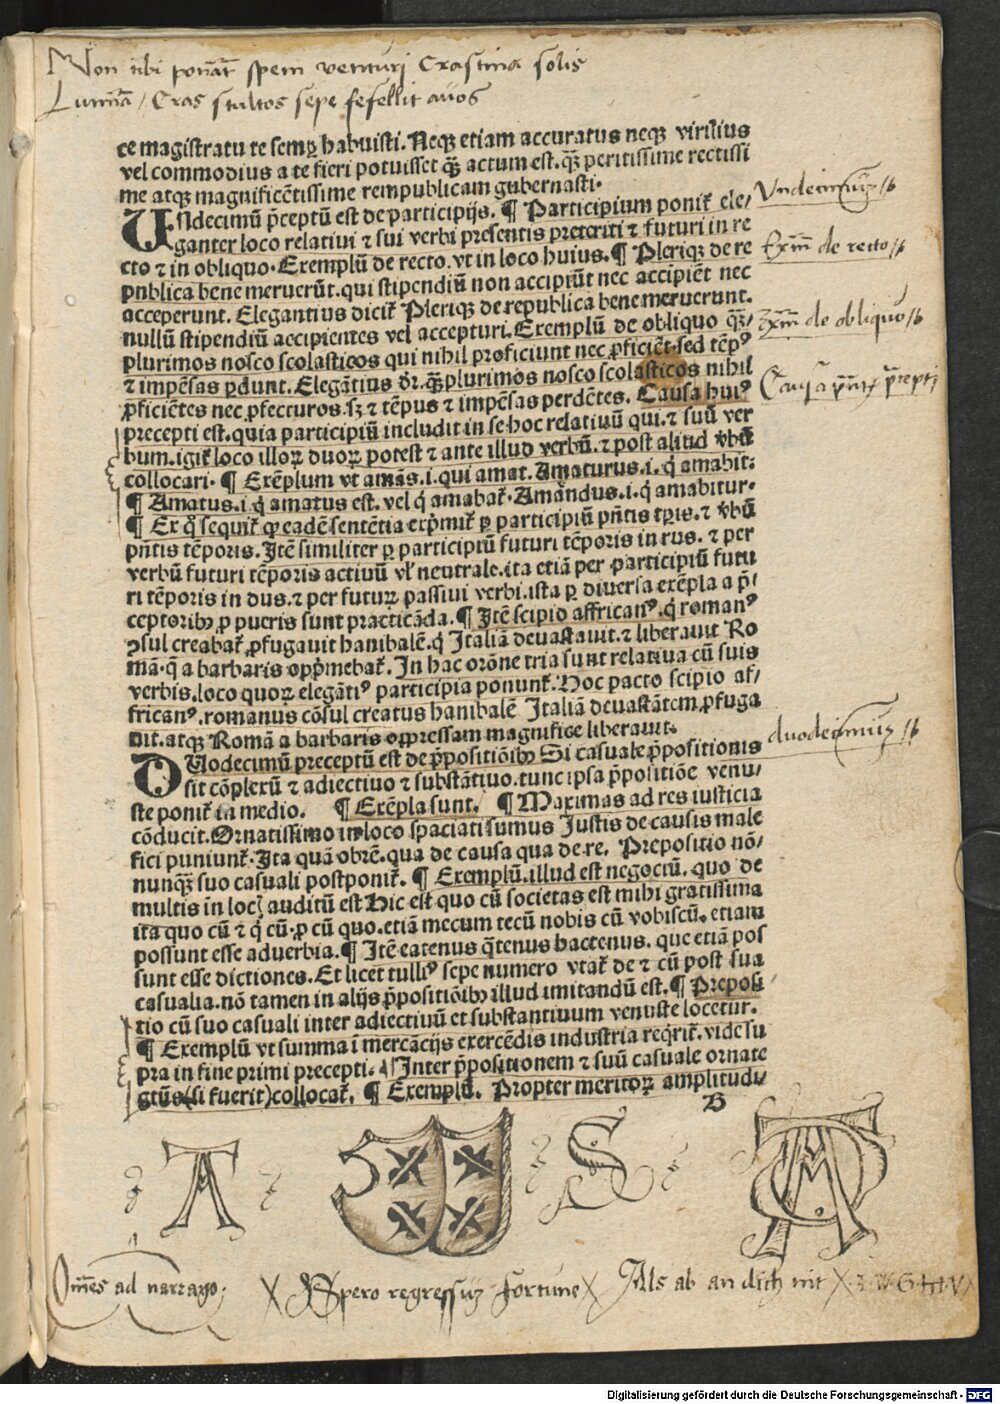 Non tibi ponat spem venturi Crastina solis
Lumina / Cras stultos sepe fefellit auos
ce magistratu te semꝑ habuisti. Neqꝫ etiam accuratus neqꝫ virilius
vel commodius a te fieri potuisset qꝫ̄ actum est. qꝫ̄ peritissime rectissi
me atqꝫ magnificētissime rempublicam gubernasti.
Undecimū p̄ceptū est de participijs. ¶ Participium ponit᷑ ele-
ganter loco relatiui ⁊ sui verbi presentis preteriti ⁊ futuri in re
cto ⁊ in obliquo. Exemplū de recto. vt in loco huius. ¶ Pleriqꝫ de re
publica bene meruerūt. qui stipendiū non accipiūt nec accipiēt nec
acceperunt. Elegantius dicit᷑ Pleriqꝫ de republica bene meruerunt.
nullū stipendiū accipientes vel accepturi. Exemplū de obliquo qꝫ̄/
plurimos nosco scolasticos qui nihil proficiunt nec ꝓficiēt. sed tēpꝰ
⁊ impēsas ꝑdunt. Elegātius dr̄. qꝫ̄ plurimos nosco scolasticos nihil
ꝓficiētes nec ꝓfecturos. sꝫ ⁊ tēpus ⁊ impēsas perdētes. Causa huiꝰ
precepti est. quia participiū includit in se hoc relatiuū qui. ⁊ suū ver
bum. igit᷑ loco illoꝝ duoꝝ potest ⁊ ante illud verbū. ⁊ post aliud v̄bū
collocari. ¶ Exēplum vt amās. i. qui amat. Amaturus. i. q̇ amabit.
¶ Amatus. i. q̇ amatus est. vel q̇ amabat᷑. Amandus. i. q̇ amabitur.
¶ Ex q̊ sequit᷑ ꝙ eadē sentētia exp̄mit᷑ ꝑ participiū pn̄tis tp̄is. ⁊ v̄bū
pn̄tis tēporis. Itē similiter ꝑ participiū futuri tēporis in rus. ⁊ per
verbū futuri tēporis actiuū vl̓ neutrale. ita etiā per participiū futu
ri tēporis in dus. ⁊ per futuꝝ passiui verbi. ista ꝑ diuersa exēpla a p̄/
ceptoribꝫ ꝓ pueris sunt practicāda. ¶ Itē scipio affricanꝰ. q̇ romanꝰ
ꝯsul creabat᷑. ꝓfugauit hanibalē. q̇ Italiā deuastauit. ⁊ liberauit Ro
mā. q̄ a barbaris opp̄mebat᷑. In hac orōne tria sunt relatiua cū suis
verbis. loco quoꝝ elegātiꝰ participia ponunt᷑. Hoc pacto scipio af/
fricanꝰ. romanus cōsul creatus hanibalē Italiā deuastātem ꝓfuga
uit. atqꝫ Romā a barbaris oppressam magnifice liberauit.
Duodecimū preceptū est de p̄positiōibꝫ Si casuale p̄positionis
sit cōplexū ⁊ adiectiuo ⁊ substātiuo. tunc ipsa p̄positiōe venu/
ste ponit᷑ in medio. ¶ Exēpla sunt. ¶ Maximas ad res iusticia
cōducit. Ornatissimo in loco spaciati sumus Justis de causis male
fici puniunt᷑. Ita quā obrē. qua de causa qua de re. Prepositio nō/
nunqꝫ̄ suo casuali postponit᷑. ¶ Exemplū. illud est negociū. quo de
multis in locꝭ auditū est Hic est quo cū societas est mihi gratissima
ita quo cū ⁊ q̇ cū. ꝓ cū quo. etiā mecum tecū nobis cū vobiscū. etiam
possunt esse aduerbia. ¶ Itē eatenus q̄tenus hactenus. que etiā pos
sunt esse dictiones. Et licet tulliꝰ sepe numero vtat᷑ de ⁊ cū post sua
casualia. nō tamen in alijs p̄positiōibꝫ illud imitandū est. ¶ Preposi
tio cū suo casuali inter adiectiuū et substantiuum venuste locetur.
¶ Exemplū vt summa ī mercācijs exercēdis industria reqrit᷑. vide su
pra in fine primi precepti. ¶ Inter p̄positionem ⁊ suū casuale ornate
gtūs (si fuerit) collocat᷑. ¶ Exemplū. Propter meritoꝝ amplitudi/
B
Vndecimum
Exm̄ de recto
Exm̄ de obliquo
Causa pn̄tꝭ p̄cepti
duodecimum
A
S
Om̄es ad narrago.
Spero regressum fortune
Als ab an dich nit